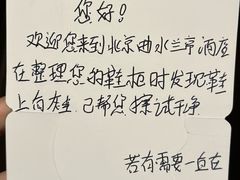 您好!
欢迎您来到北京曲水兰亭酒店
在整理您的鞋柜时发现鞋
上有灰尘,已帮您擦试干净
若有需要一直在